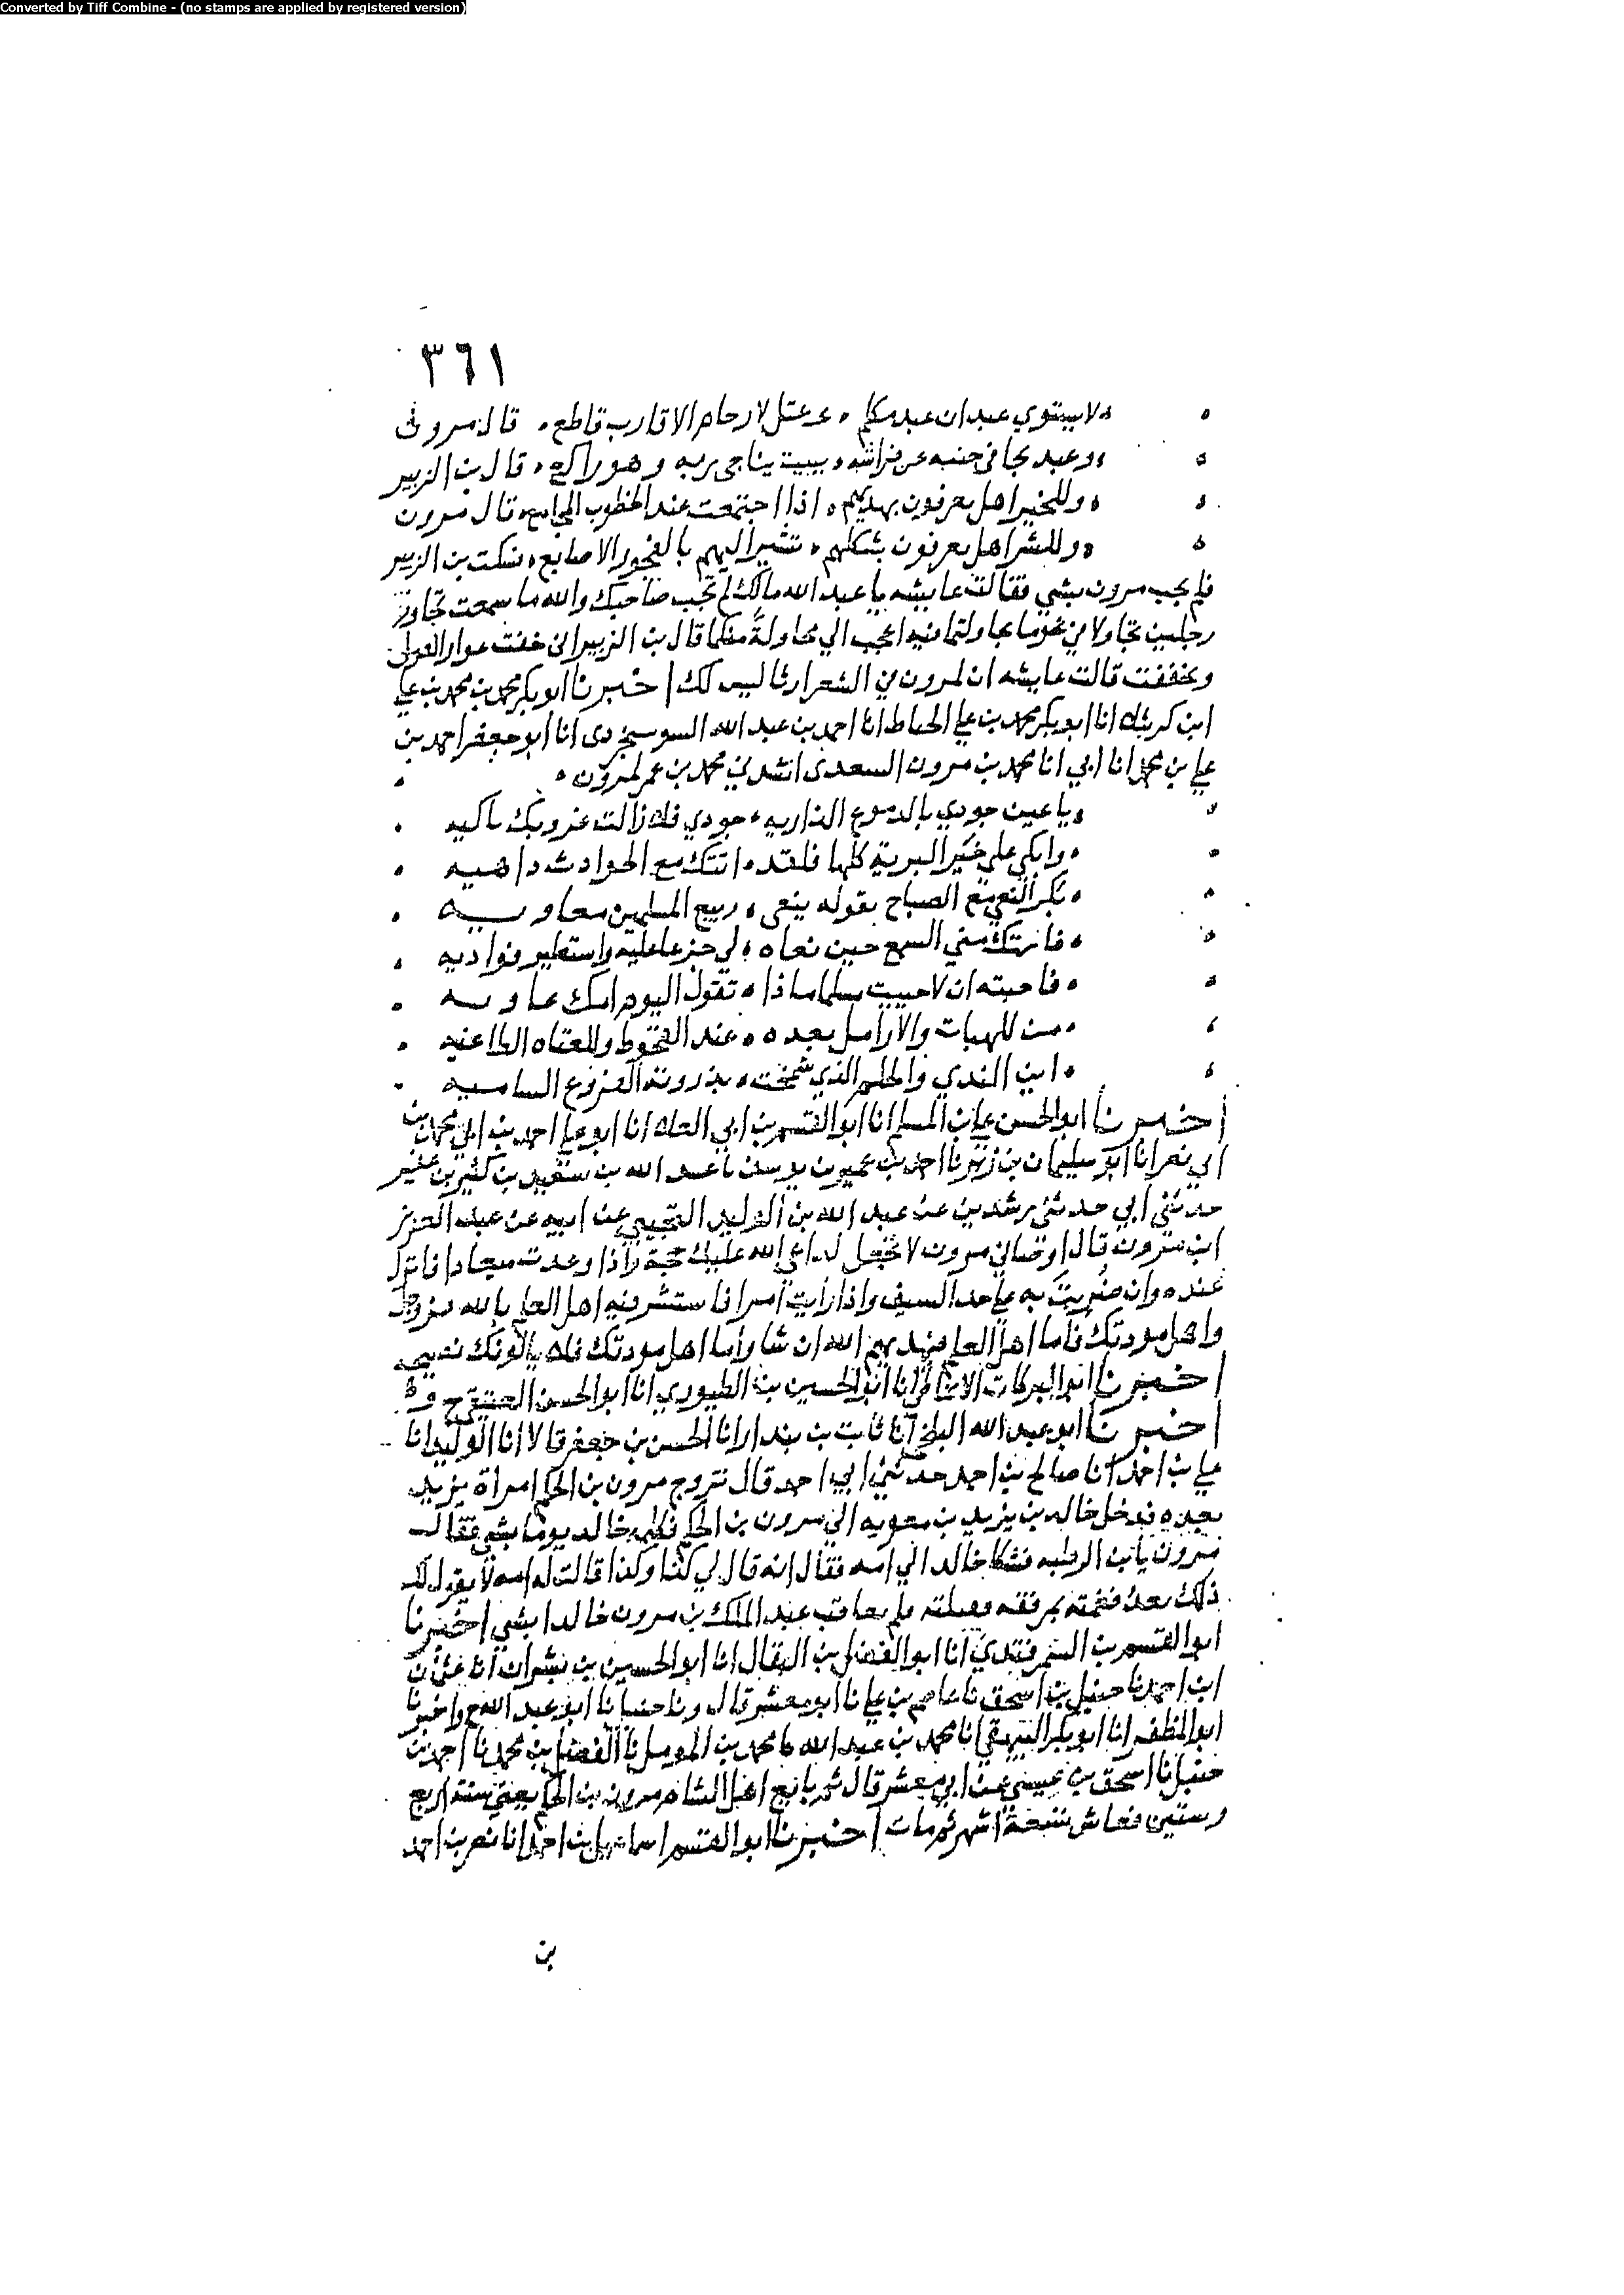 Converted by Tiff Combine - (no stamps are applied by registered version)
٣٦١
لا يستوي عبدان عبد مكلم عتل لارحام الاقارب قاطع قال مرون
وعبد تجافى جنبه عن فراشه يبيت يناجي ربه وهو راكع قال بن الزبير
وللخير اهل يعرفون بهديهم اذا اجتمعت عند الخطوب المجامع قال مرون
وللشر اهل يعرفون بشكلهم تشير اليهم بالفجور الاصابع فسكت بن الزبير
فلم يجب مرون بشي فقالت عايشه يا عبد الله مالك لم تجب صاحبك والله ما سمعت تجاول
رجلين تجاولا في نحو ما تجاولتما فيه اعجب الي مجاولة منكما قال بن الزبير اني خفت عوار القول
وتخففت قالت عايشه ان لمرون في الشعر ارثا ليس لك اخبرنا ابو بكر محمد بن محمد بن علي
ابن كرتيلا انا ابو بكر محمد بن علي الخياط انا احمد بن عبد الله السوسنجردى انا ابو جعفر احمد بن
علي بن محمد انا ابي انا محمد بن مرون السعدى انشدني محمد بن عمر لمرون
يا عين جودي بالدموع الذاريه جودي فلا زالت غروبك باكيه
وابكي على خير البرية كلها فلقد اتتك مع الحوادث داهيه
بكر النعي مع الصباح بقوله ينعى ربيع المسلمين معاويه
فاستك مني السمع حين نعاه لي جزعا عليه واستطير فواديه
فاجبته ان لا حييت مسلما ماذا تقول اليوم امك هاويه
من للهبات والارامل بعده عند القحوط وللعتاه الطاغيه
اين الندي والحلم الذي شمخت بذروته الفروع الساميه
اخبرنا ابو الحسن علي بن المسلم انا ابو القسم بن ابي العلا انا ابو علي احمد بن ابي محمد بن
ابي نصر انا ابو سليمان بن زبر نا احمد بن عمير بن يوسف نا عبد الله بن سعيد بن كثير بن عفير
حدثني ابي حدثني رشدين عن عبد الله بن الوليد التجيبي عن ابيه عن عبد العزيز
ابن مرون قال اوصاني مرون لا تجعل لداعي الله عليك حجة واذا وعدت ميعادا فانزل
عنده وان ضربت به على حد السيف واذا رايت امرا فاستشر فيه اهل العلم بالله عز وجل
واهل مودتك فاما اهل العلم فيهديهم الله ان شا واما اهل مودتك فلا يالونك نصيحه
اخبرنا ابو البركات الانماطي انا ابو الحسين بن الطيوري انا ابو الحسن العتيقي ح
اخبرنا ابو عبد الله البلخي انا ثابت بن بندار انا الحسن بن جعفر قالا انا الوليد انا
علي بن احمد انا صالح بن احمد حدثني ابي احمد قال تزوج مرون بن الحكم امراة يزيد
بعده فدخل خالد بن يزيد بن معويه الي مرون بن الحكم فكلمه خالد يوما بشي فقال
مرون يا بن الرطبه فشكا خالد الي امه فقال انه قال لي كذا وكذا قالت له امه لا يقول لك
ذلك بعد فغمته بمرفقه فقتلته ولم يعاقب عبد الملك بن مرون خالدا بشي اخبرنا
ابو القسم بن السمرقندي انا ابو الفضل بن البقال انا ابو الحسين بن بشران انا عثمن
ابن احمد نا حنبل بن اسحق نا عاصم بن علي نا ابو معشر قال ونا حنبل نا ابو عبد الله ح واخبرنا
ابو المظفر انا ابو بكر البيهقي انا محمد بن عبد الله نا محمد بن المومل نا الفضل بن محمد نا احمد بن
حنبل نا اسحق بن عيسى عن ابي معشر قال ثم بايع اهل الشام مرون بن الحكم يعني سنة اربع
وستين فعاش تسعة اشهر ثم مات اخبرنا ابو القسم اسماعيل بن احمد انا نصر بن احمد
بن